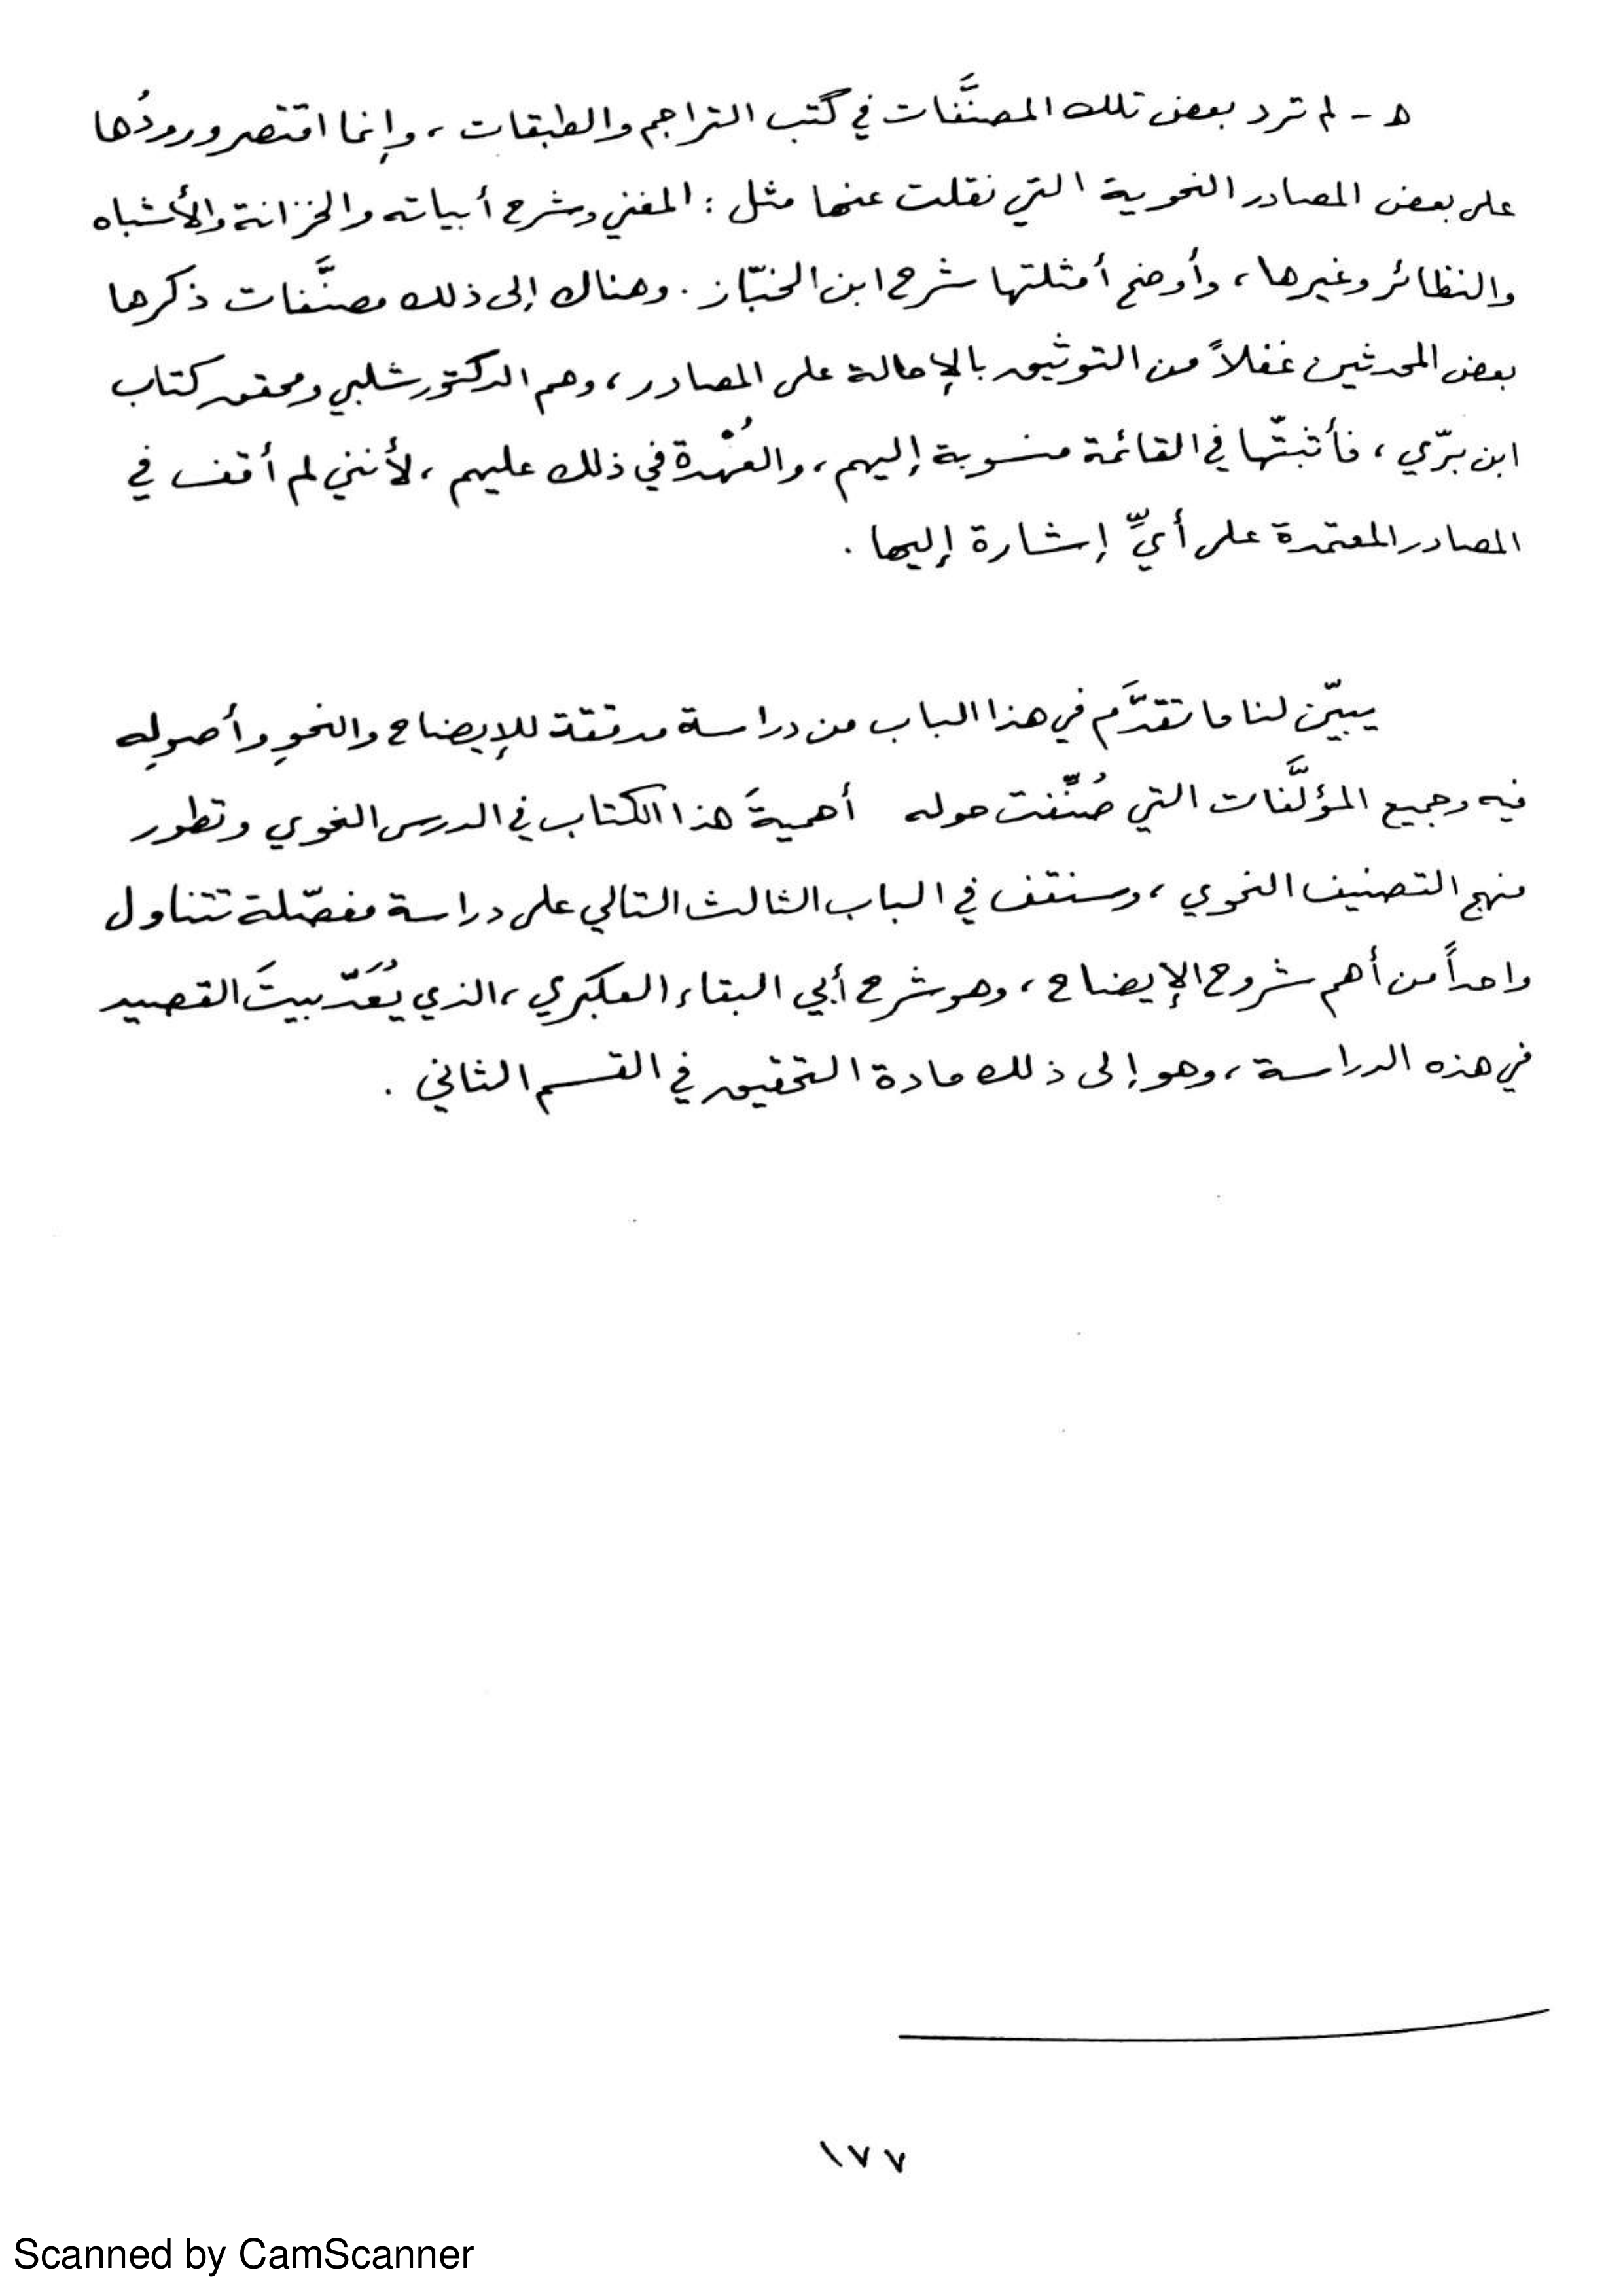 ه - لم ترد بعض تلك المصنَّفات في كتب التراجم والطبقات ، وإنما اقتصر ورودُها
على بعض المصادر النحوية التي نقلت عنها مثل : المغني وشرح أبياته والخزانة والأشباه
والنظائر وغيرها ، وأوضح أمثلتها شرح ابن الخبّاز . وهناك إلى ذلك مصنَّفات ذكرها
بعض المحدثين غفلاً من التوثيق بالإحالة على المصادر ، وهم الدكتور شلبي ومحقق كتاب
ابن برّي ، فأثبتّها في القائمة منسوبة إليهم ، والعُهْدة في ذلك عليهم ، لأنني لم أقف في
المصادر المعتمدة على أيِّ إشارة إليها .
يبيّن لنا ما تقدَّم في هذا الباب من دراسة مدققة للإيضاح والنحوِ وأصولِه
فيه وجميع المؤلَّفات التي صُنِّفت حوله أهميةَ هذا الكتاب في الدرس النحوي وتطور
منهج التصنيف النحوي ، وسنقف في الباب الثالث التالي على دراسة مفصّلة تتناول
واحداً من أهم شروح الإيضاح ، وهو شرح أبي البقاء العكبري ، الذي يُعَدّ بيتَ القصيد
في هذه الدراسة ، وهو إلى ذلك مادة التحقيق في القسم الثاني .
١٧٧
Scanned by CamScanner